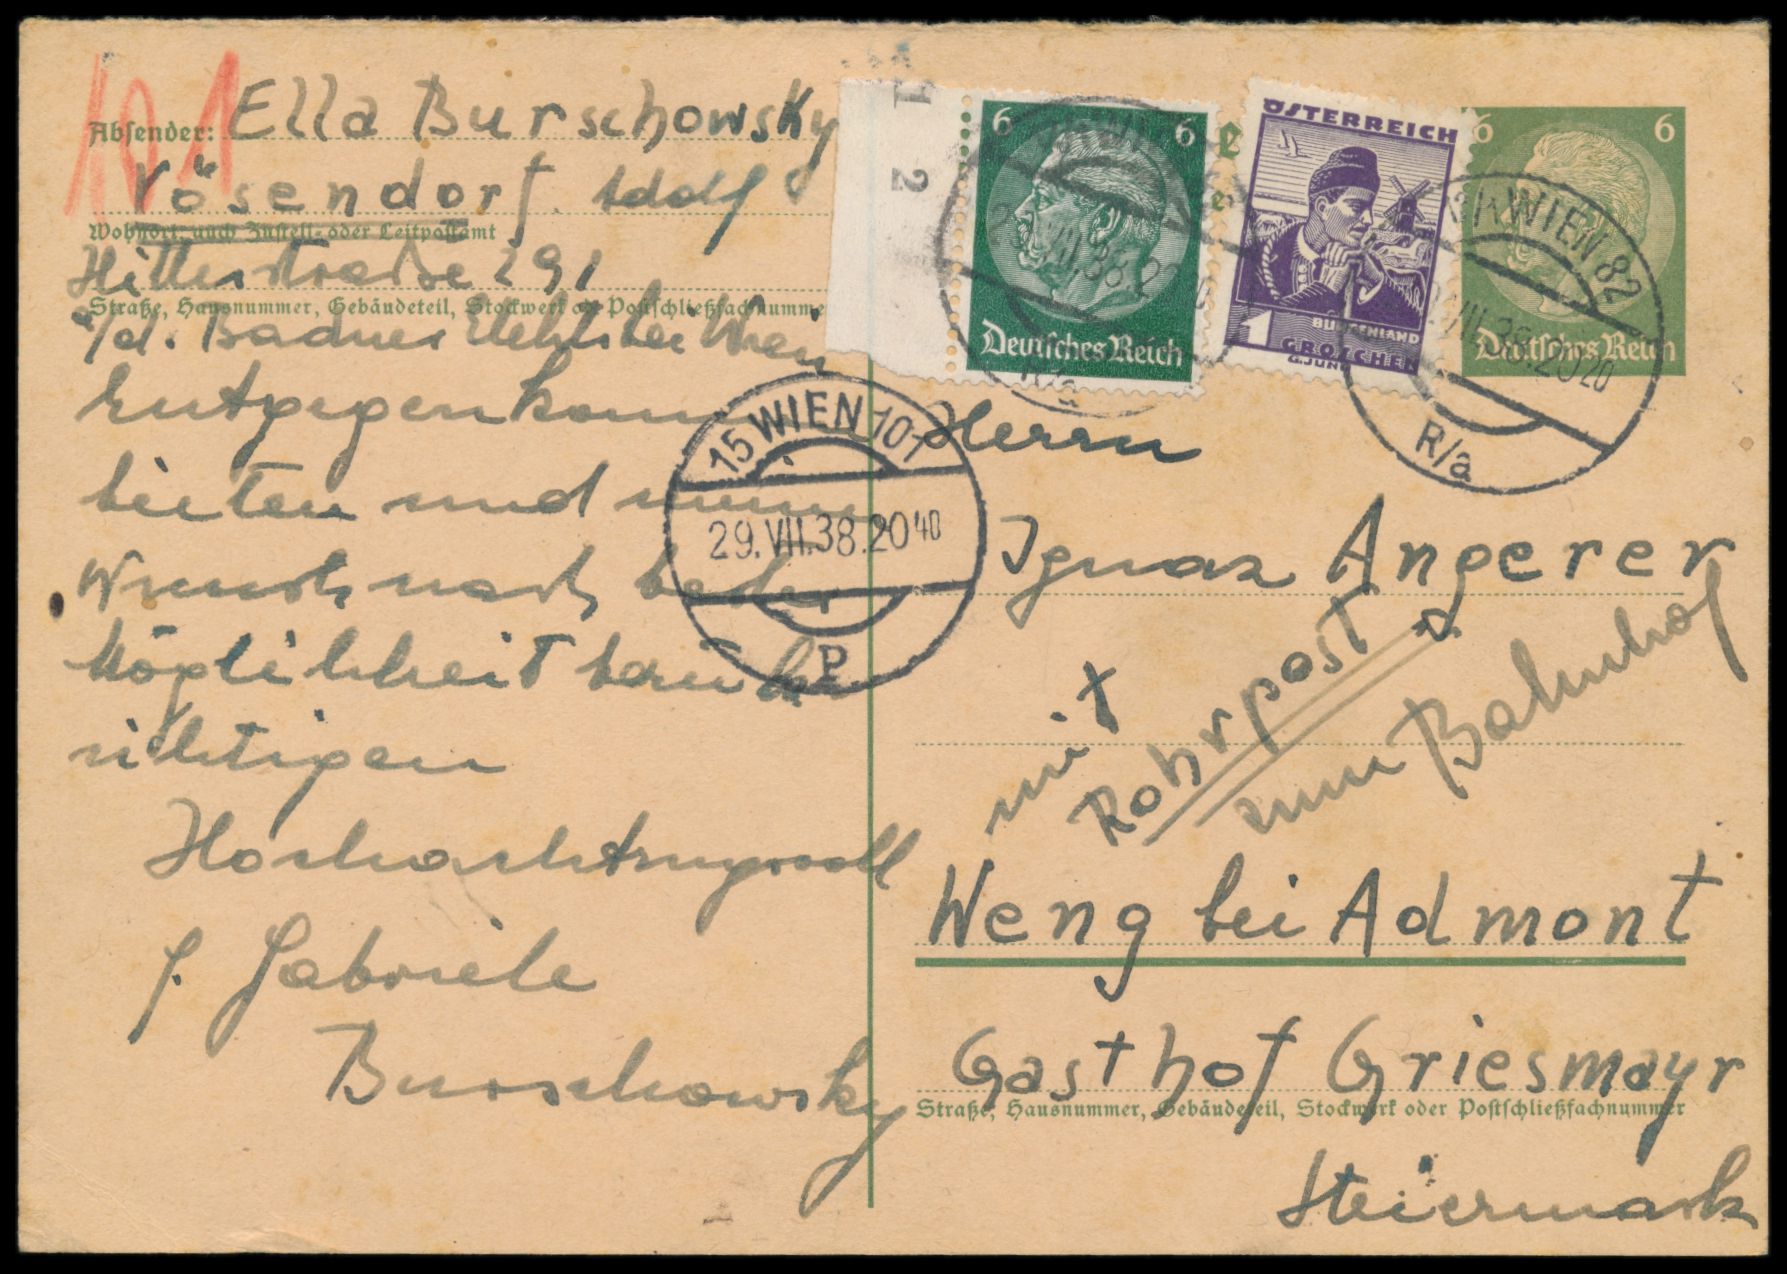 101
Absender: Ella Burschowsky
Vösendorf. Adolf
Wohnort, auch Zustell- oder Leitpostamt
Hitlerstraße 291
Straße, Hausnummer, Gebäudeteil, Stockwerk od. Postschließfachnummer
a/d. Badner Elektr. bei Wien
Entgegenkommen
bieten und meinen
Wunsch nach
Möglichkeit berück
sichtigen
Hochachtungsvoll
f. Gabriele
Burschowsky
1
2
6 6
Deutsches Reich
ÖSTERREICH
1 BURGENLAND
GROSCHEN
G.JUNG
6 6
Deutsches Reich
WIEN 82
VII.38.20 20
R/a
15 WIEN 101
29.VII.38.20 40
P
Herrn
Ignaz Angerer
mit
Rohrpost
zum Bahnhof
Weng bei Admont
Gasthof Griesmayr
Straße, Hausnummer, Gebäudeteil, Stockwerk oder Postschließfachnummer
Steiermark